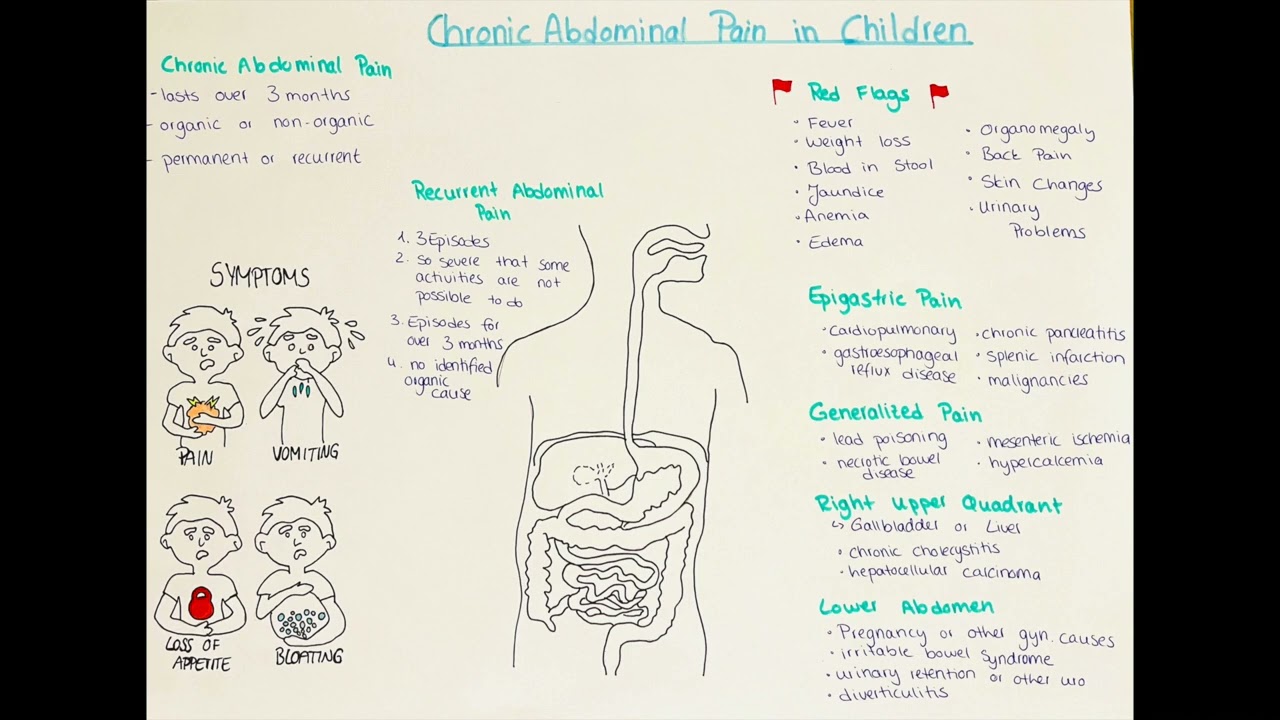 Chronic Abdominal Pain in Children
Chronic Abdominal Pain
- lasts over 3 months
- organic or non-organic
- permanent or recurrent
Recurrent Abdominal
Pain
1. 3 Episodes
2. so severe that some
activities are not
possible to do
3. Episodes for
over 3 months
4. no identified
organic
cause
SYMPTOMS
PAIN
VOMITING
LOSS OF
APPETITE
BLOATING
Red Flags
• Fever
• Weight loss
• Blood in Stool
• Jaundice
• Anemia
• Edema
• Organomegaly
• Back Pain
• Skin Changes
• Urinary
Problems
Epigastric Pain
• cardiopulmonary
• gastroesophageal
reflux disease
• chronic pancreatitis
• splenic infarction
• malignancies
Generalized Pain
• lead poisoning
• necrotic bowel
disease
• mesenteric ischemia
• hypercalcemia
Right Upper Quadrant
↳ Gallbladder or Liver
• chronic cholecystitis
• hepatocellular calcinoma
Lower Abdomen
• Pregnancy or other gyn. causes
• irritable bowel syndrome
• urinary retention or other uro
• diverticulitis